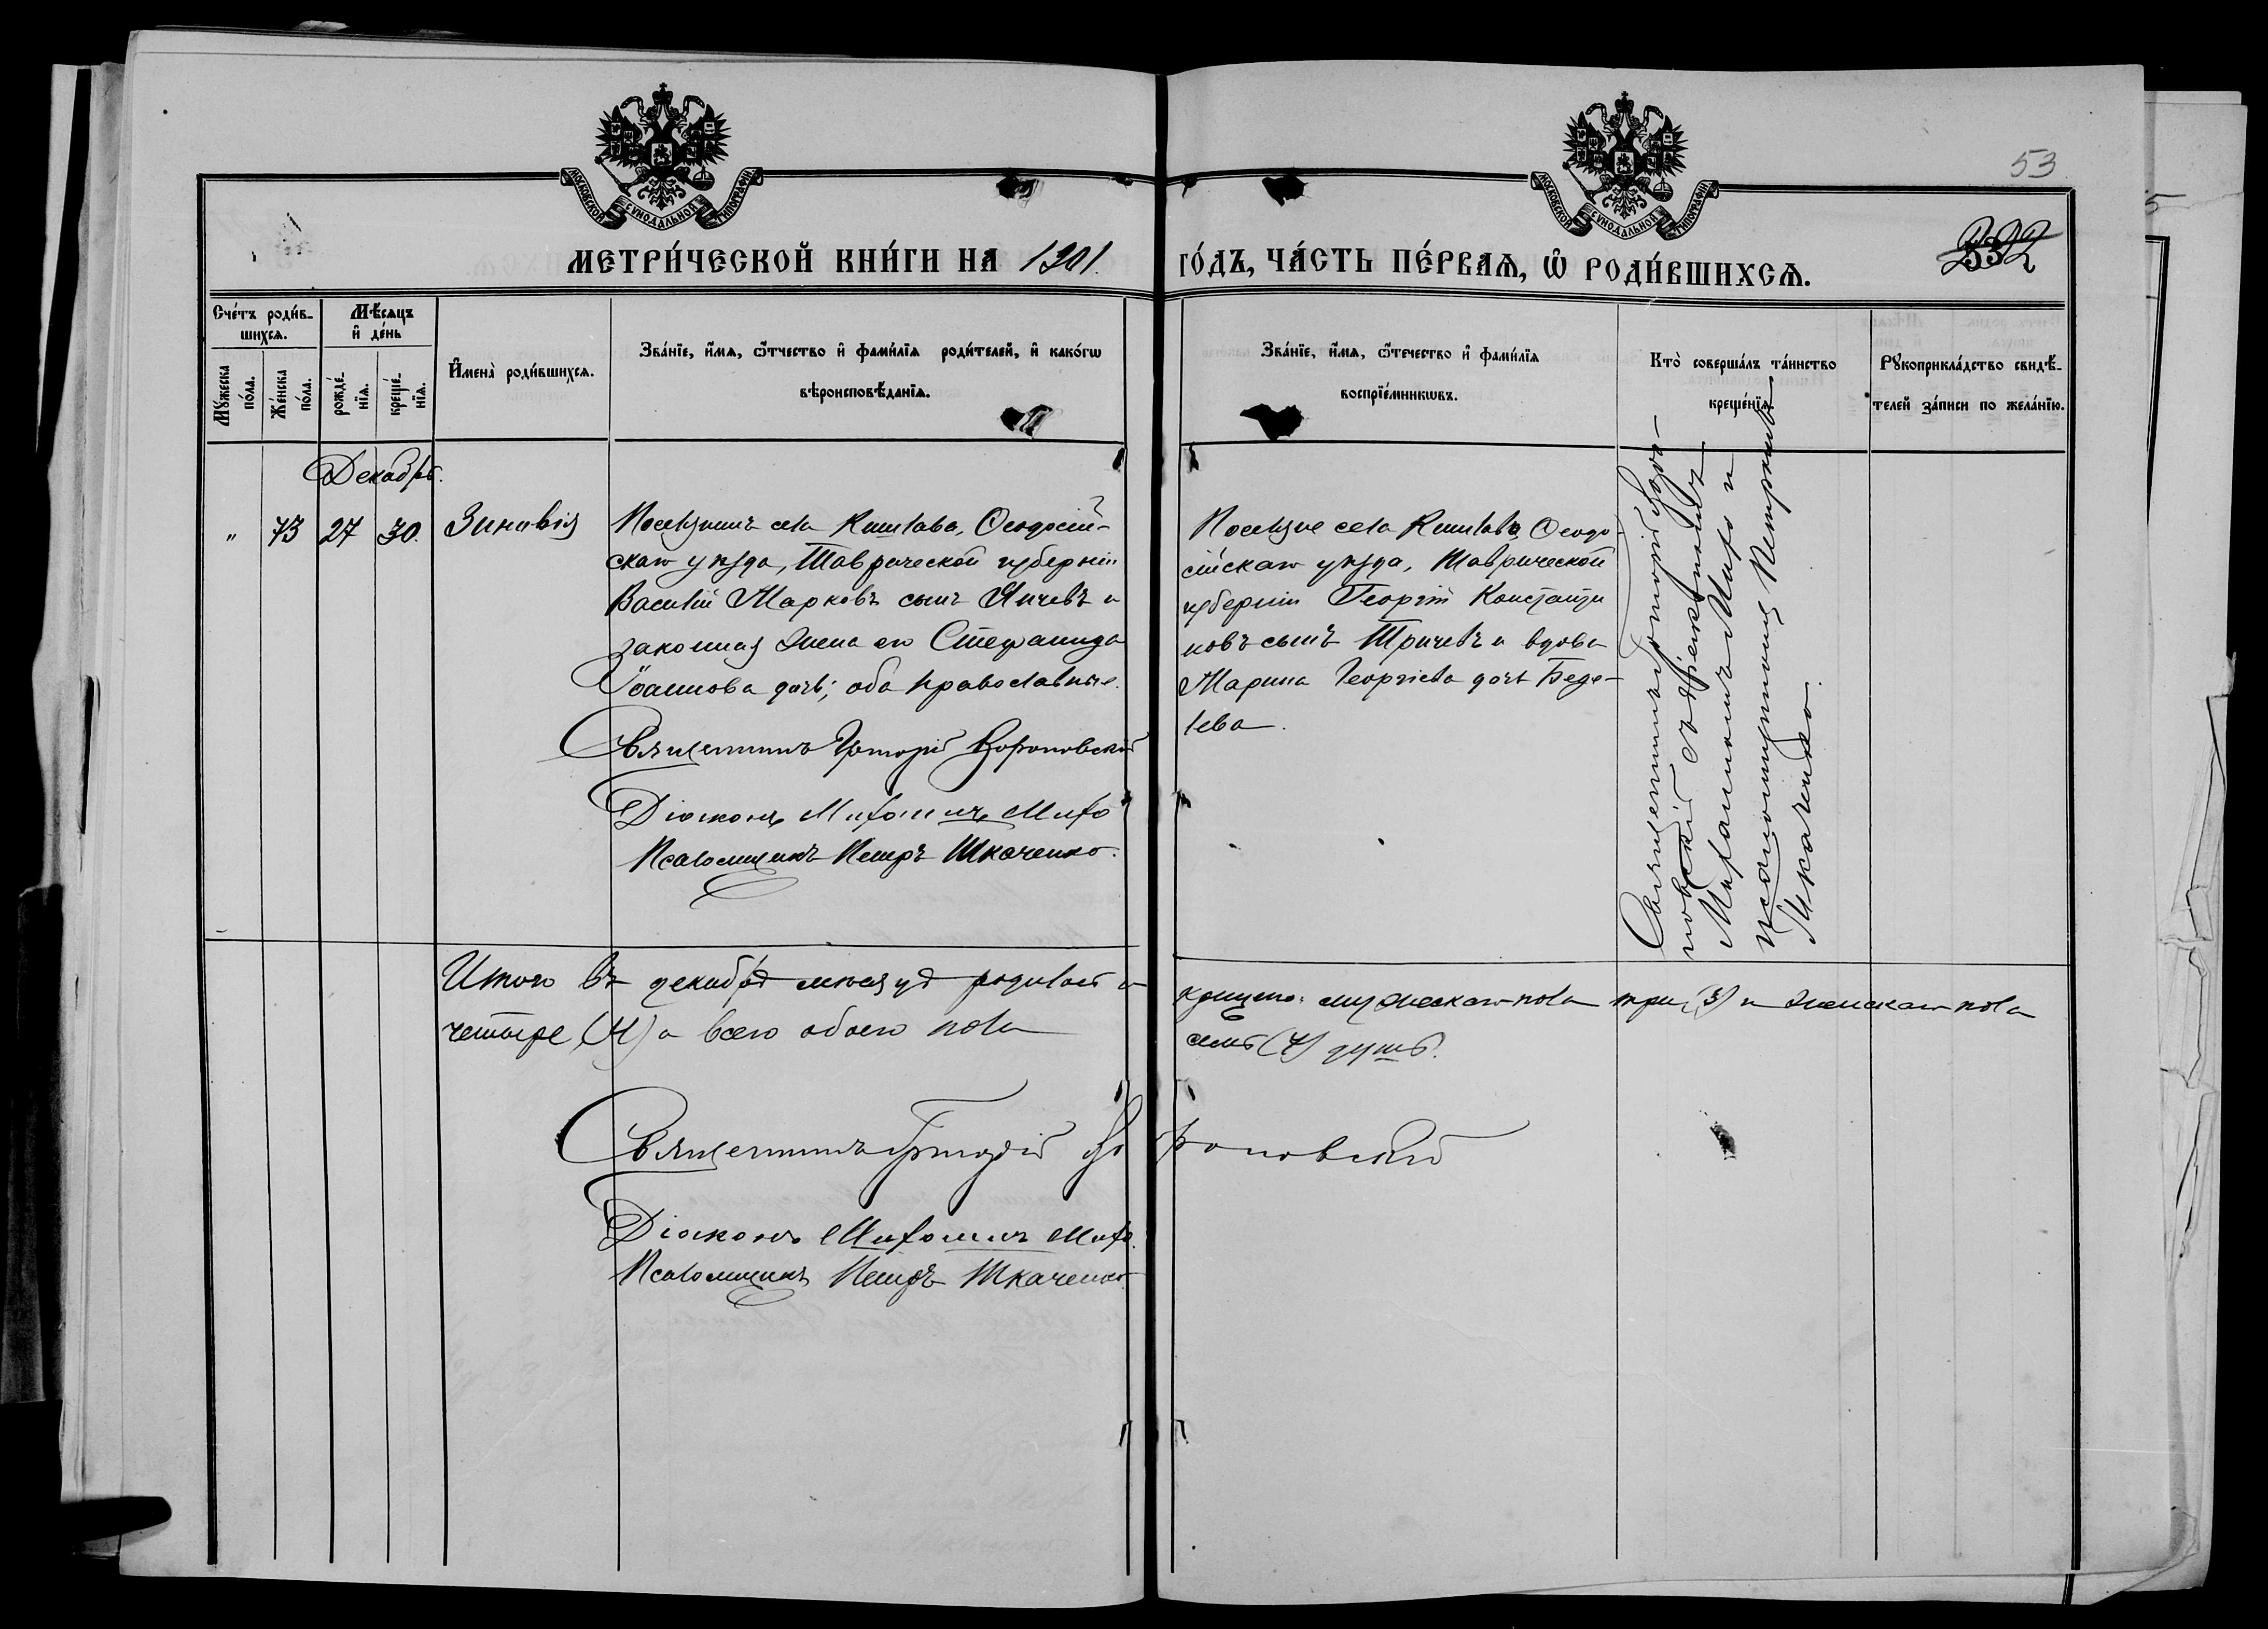 МОСКОВСКОЙ СѴНОДАЛЬНОЙ ТИПОГРАФІИ
МОСКОВСКОЙ СѴНОДАЛЬНОЙ ТИПОГРАФІИ
53
332
МЕТРИ́ЧЕСКОЙ КНИ́ГИ НА 1901.
ГО́ДЪ, ЧА́СТЬ ПЕ́РВАѦ, Ѿ РОДИ́ВШИХСѦ.
Сче́тъ роди́в-
шихсѧ.
Мꙋ́жеска
по́ла.
Же́нска
по́ла.
Мѣ́сѧцъ
и҆ де́нь
рожде́-
нїѧ.
креще́-
нїѧ.
И҆мена̀ роди́вшихсѧ.
Зва́нїе, и҆́мѧ, ѻ҆́тчество и҆ фами́лїѧ роди́телей, и҆ како́гѡ
вѣроисповѣ́данїѧ.
Зва́нїе, и҆́мѧ, ѻ҆́течество и҆ фами́лїѧ
воспрїе́мникѡвъ.
Кто̀ соверша́лъ та́инство
креще́нїѧ.
Рꙋкоприкла́дство свидѣ́-
телей за́писи по жела́нїю.
Декабрь.
" 73 27 30. Зиновія
Поселянинъ села Кишлава, Ѳеодосій-
скаго уѣзда, Таврической губерніи
Василій Марковъ сынъ Янчевъ и
законная жена его Стефанида
Іоаннова дочь; оба православные.
Священникъ Григорій Вороновскій
Діаконъ Михаилъ Михо
Псаломщикъ Петръ Ткаченко.
Поселяне села Кишлава Ѳеодо-
сійскаго уѣзда, Таврической
губерніи Георгій Константи
новъ сынъ Тричевъ и вдова
Марина Георгіева дочь Беде-
лева.
Священникъ Григорій Воро-
новскій съ діакономъ
Михаиломъ Михо и
псаломщикомъ Петромъ
Ткаченко.
Итого въ декабрѣ мѣсяцѣ родилось и
крещено: мужескаго пола три (3) и женскаго пола
четыре (4) а всего обоего пола
семь (7) душъ.
Священникъ Григорій Вороновскій
Діаконъ Михаилъ Михо.
Псаломщикъ Петръ Ткаченко